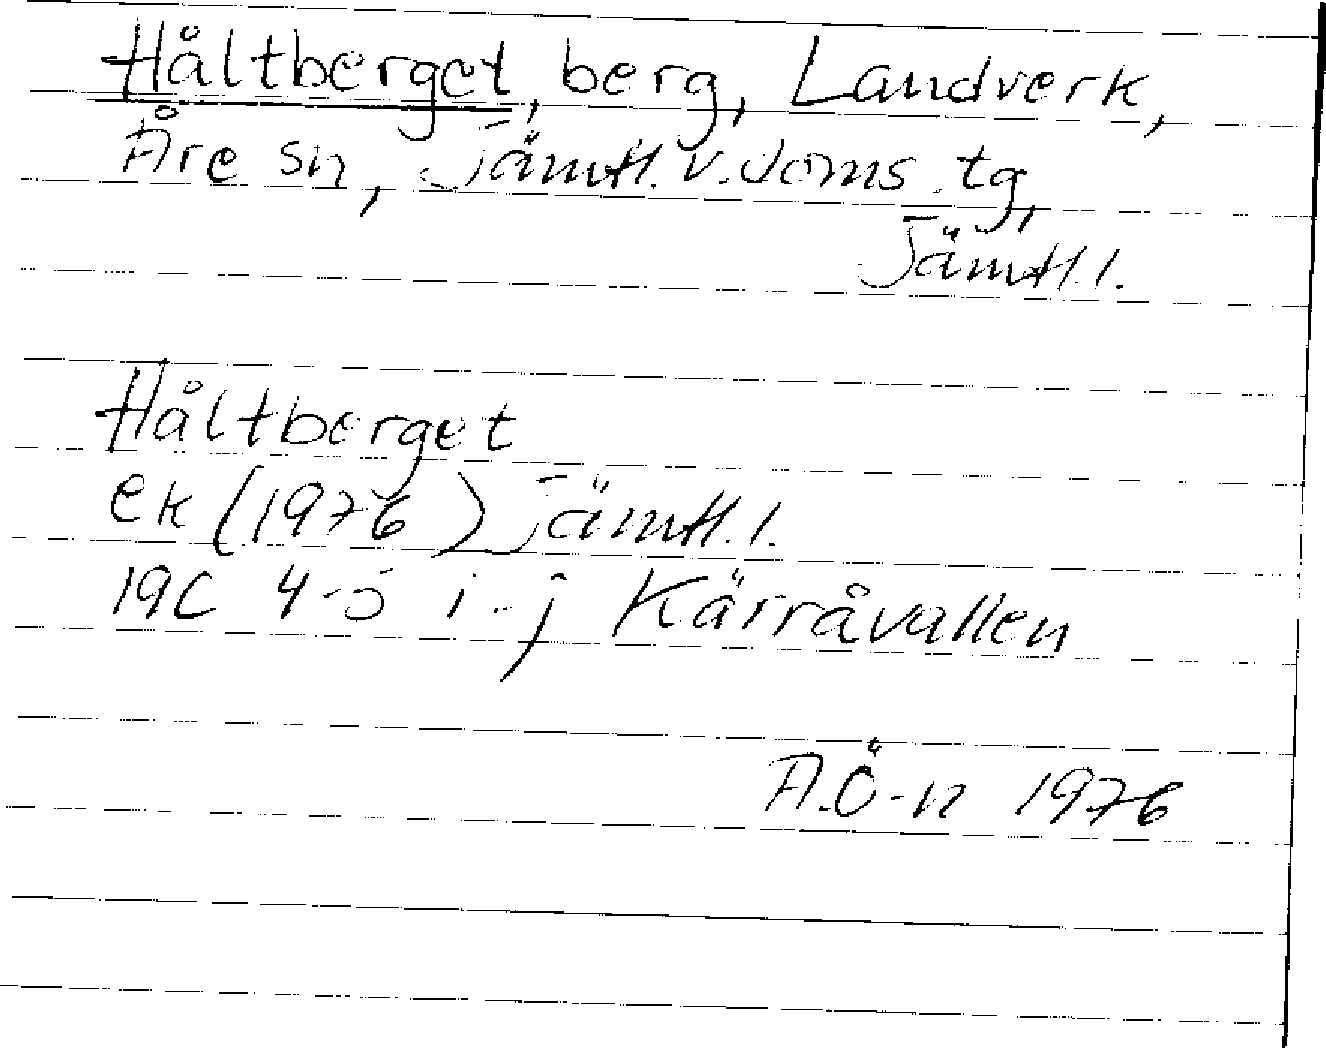 Håltberget, berg, Landverk,
Åre sn, Jämtl. v. doms. tg,
Jämtl. l.
Håltberget
ek (1976) Jämtl. l.
19C 4-5 i-j Kärråvallen
A.Ö-n 1976